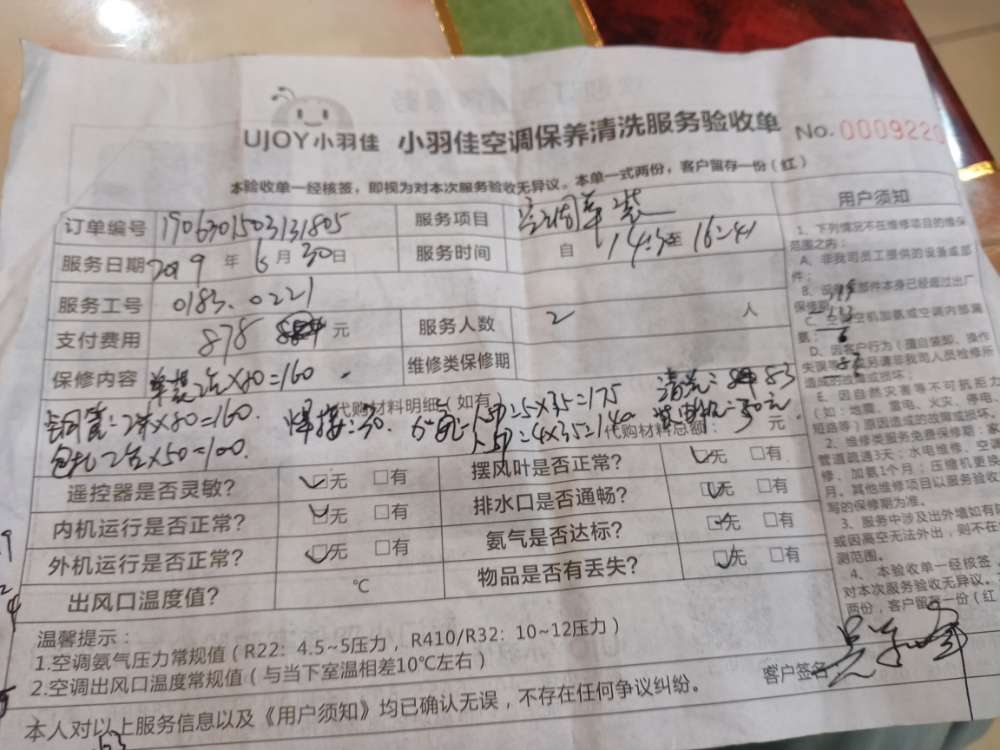 UJOY小羽佳 小羽佳空调保养清洗服务验收单 No.0009220
本验收单一经核签，即视为对本次服务验收无异议。本单一式两份，客户留存一份（红）
订单编号 1906301503131805 服务项目 空调单装
服务日期 2019年6月30日 服务时间 自14:3至16:41
服务工号 0183.0221
支付费用 878 元 服务人数 2人
保修内容 单装2台×80=160. 维修类保修期
代购材料明细（如有）
铜管=2米×80=160. 焊接:30. 5×35=175 清洗: 83
包扎2台×50=100. =4×35=140 代购材料总额: 元
遥控器是否灵敏? 无 有 摆风叶是否正常? 无 有
内机运行是否正常? 无 有 排水口是否通畅? 无 有
外机运行是否正常? 无 有 氨气是否达标? 无 有
出风口温度值? ℃ 物品是否有丢失? 无 有
温馨提示：
1.空调氨气压力常规值（R22：4.5~5压力，R410/R32：10~12压力）
2.空调出风口温度常规值（与当下室温相差10℃左右）
客户签名
本人对以上服务信息以及《用户须知》均已确认无误，不存在任何争议纠纷。
用户须知
1、下列情况不在维修项目的维保
范围之内：
A、非我司员工提供的设备或部
件；
部件本身已经超过出厂
保修期
空机加氨或空调内部漏
氨；
D、因客户行为（擅自装卸、操作
失误 另请非我司人员检修所
造成的故障或损坏；
E、因自然灾害等不可抗拒力
（如：地震、雷电、火灾、停电、
短路等）原因造成的故障或损坏。
2、维修类服务免费保修期：家
管道疏通3天；水电维修、空
修、加氨1个月，压缩机更换
月。其他维修项目以服务验收
写的保修期为准。
3、服务中涉及出外墙如有
或因高空无法外出，则不在
测范围。
4、本验收单一经核签，
对本次服务验收无异议。
两份，客户留存一份（红